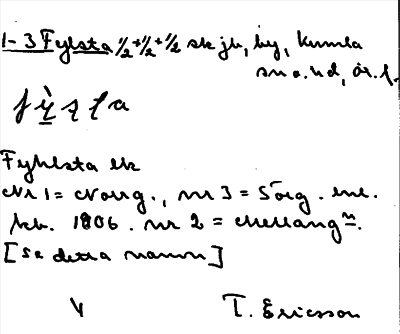 1-3 Fylsta 1/2+1/2+1/2 sk jb, by, Kumla
sn o. hd, ör. l.
fỳsta
Fyhlsta sk
Nr 1 = Norrg., nr 3 = Sörg. enl.
kb. 1806. nr 2 = Mellangn.
[se detta namn]
V T. Ericsson